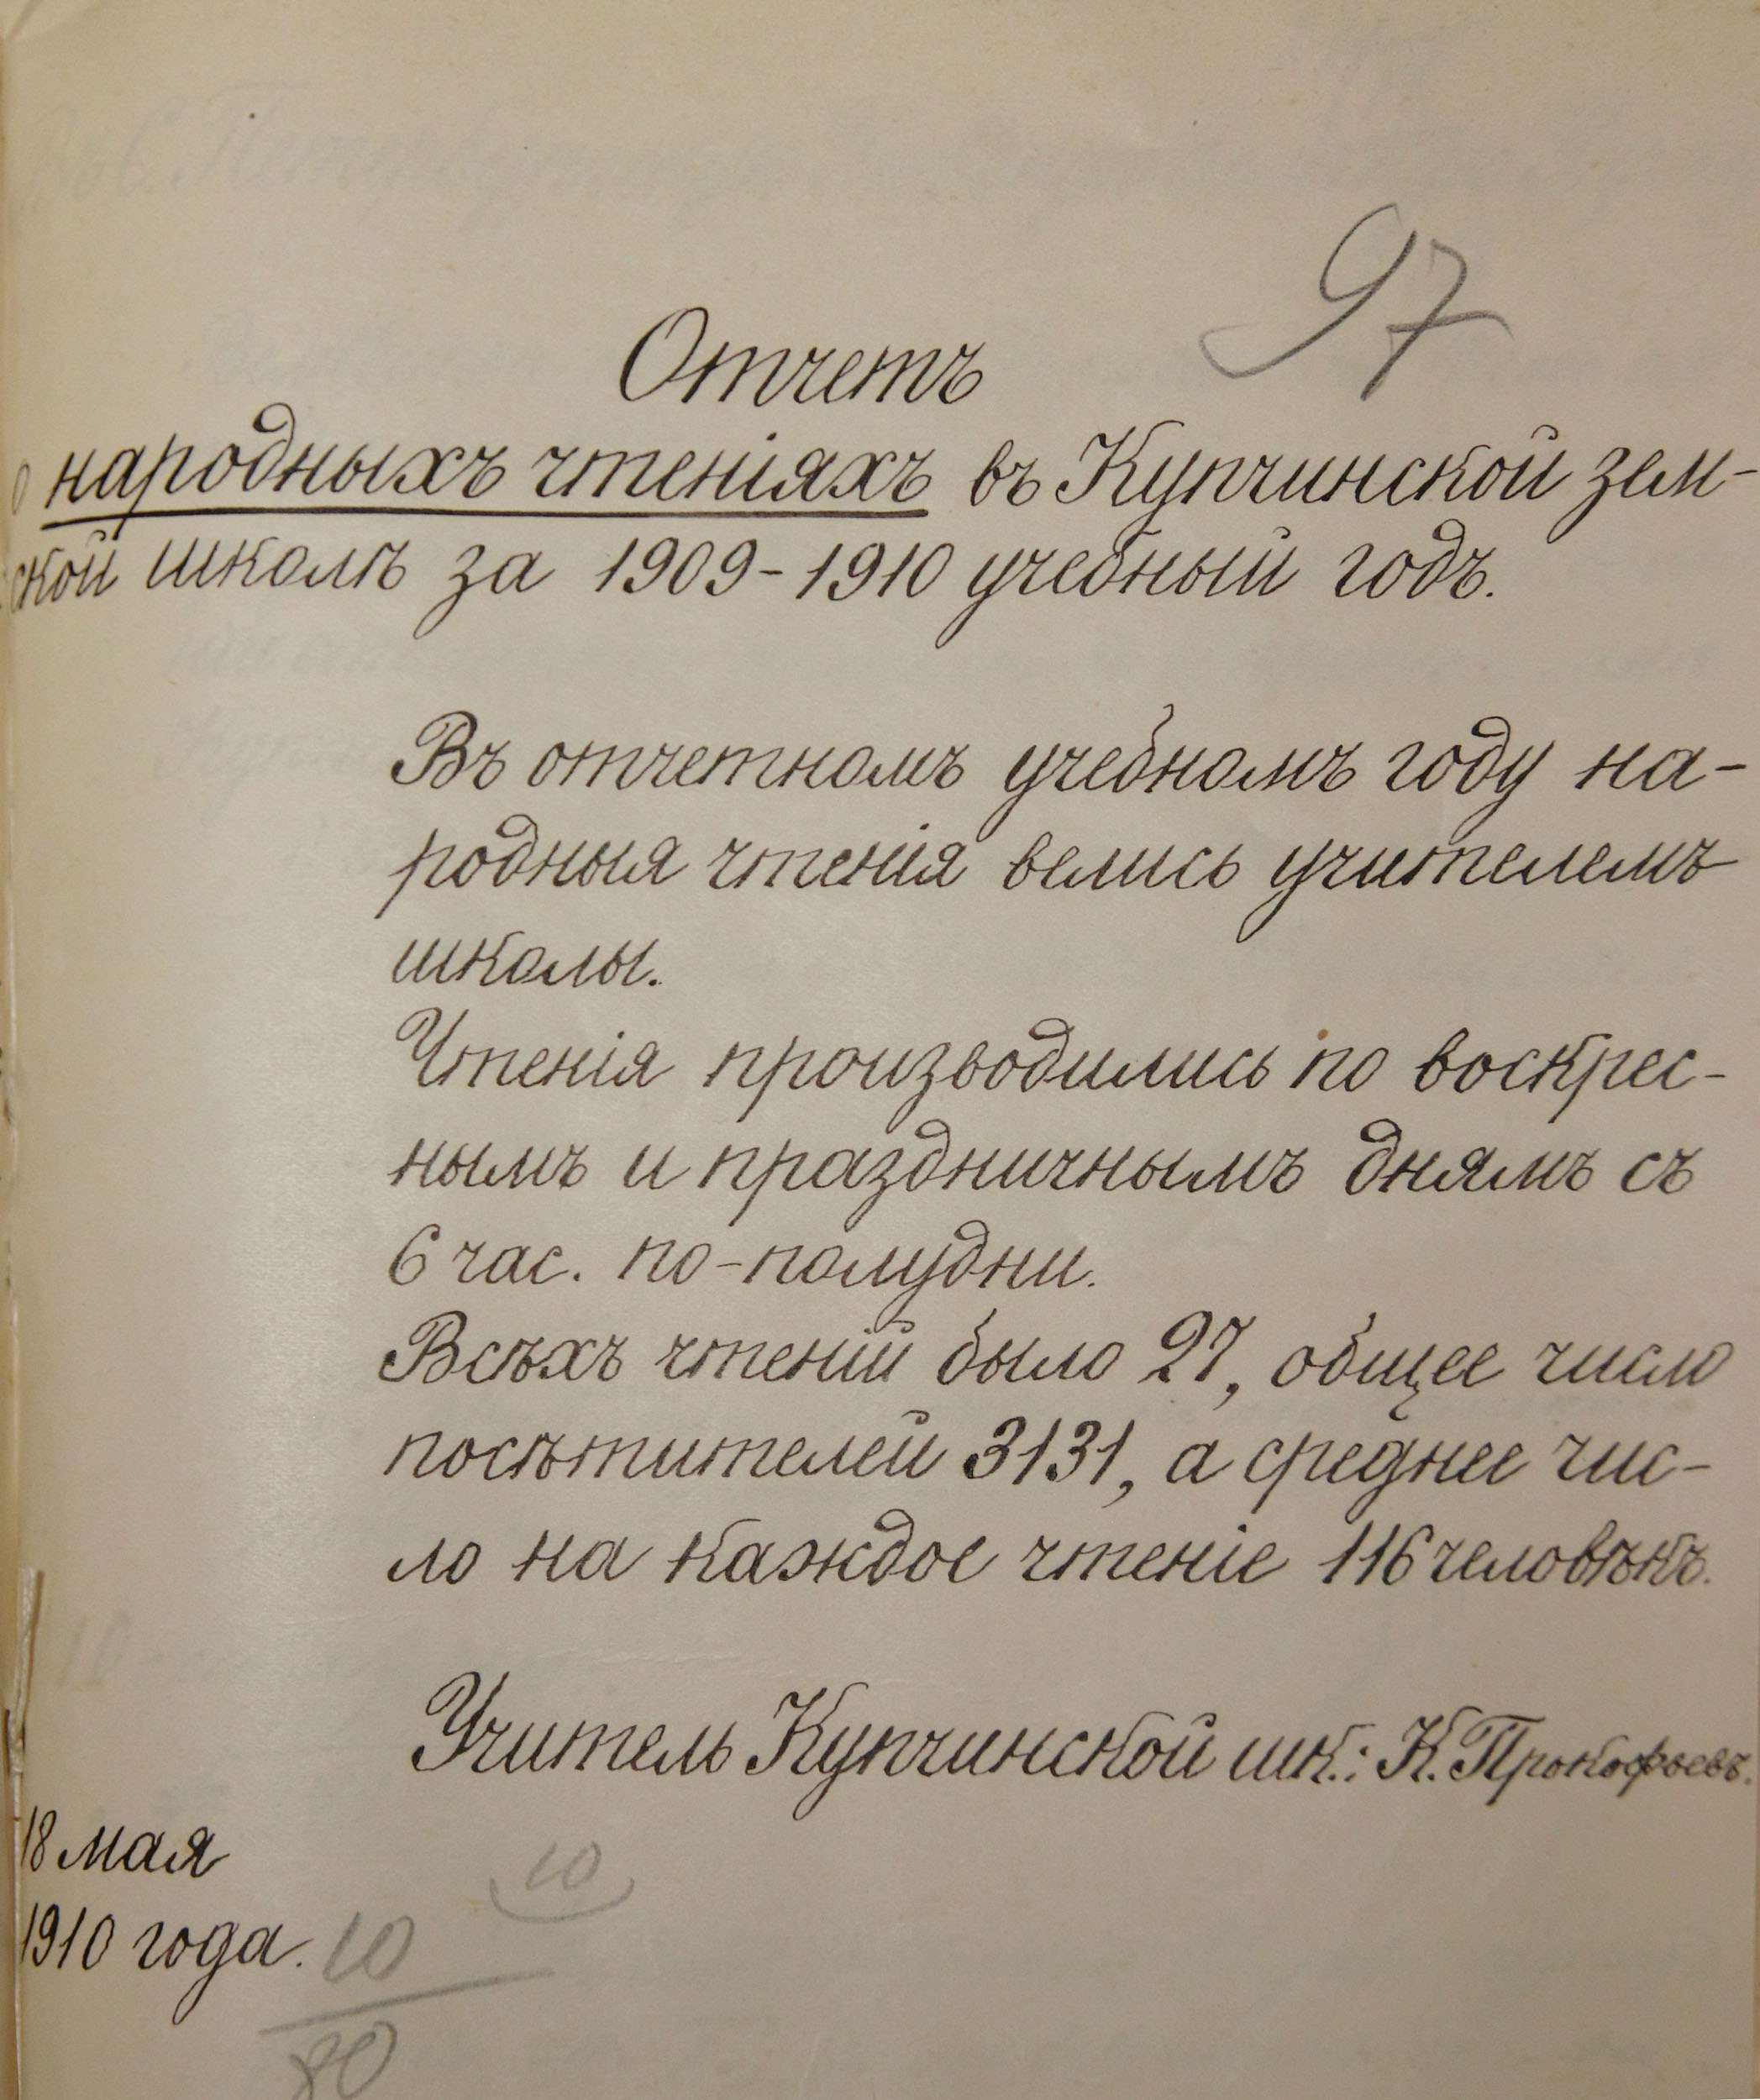 97
Отчетъ
о народныхъ чтеніяхъ въ Купчинской зем-
ской школѣ за 1909-1910 учебный годъ.
Въ отчетномъ учебномъ году на-
родныя чтенія велись учителемъ
школы.
Чтенія производились по воскрес-
нымъ и праздничнымъ днямъ съ
6 час. по-полудни.
Всѣхъ чтеній было 27, общее число
посѣтителей 3131, а среднее чис-
ло на каждое чтеніе 116 человѣкъ.
Учитель Купчинской шк.: К. Прокофьевъ.
18 мая
1910 года.
10
10
80